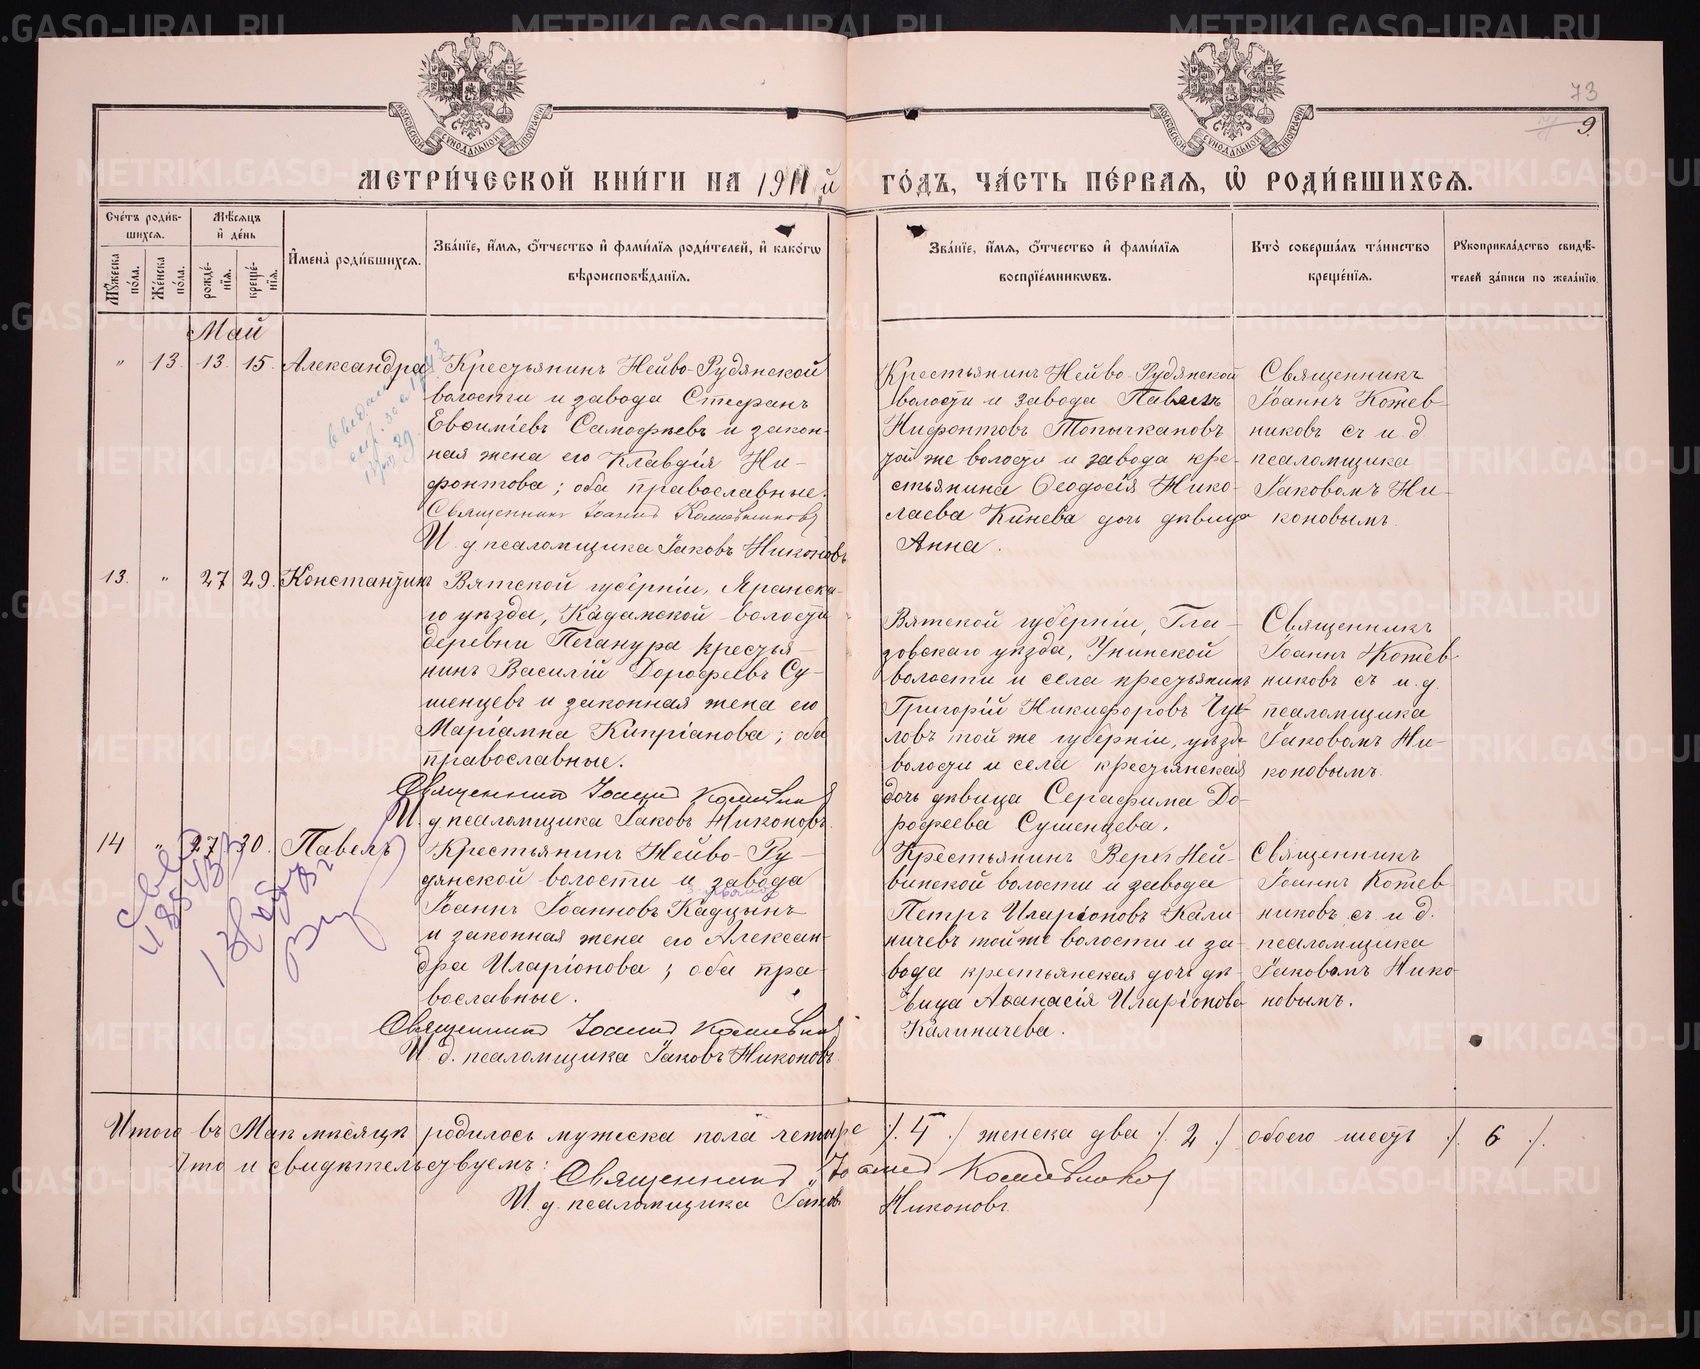 73
9.
МЕТРИ́ЧЕСКОЙ КНИ́ГИ НА 1911й ГО́ДЪ, ЧА́СТЬ ПЕ́РВАѦ, Ѡ҆ РОДИ́ВШИХСѦ.
Сче́тъ роди́в-
шихсѧ.
Мꙋ́жеска
по́ла.
Же́нска
по́ла.
Мѣ́сѧцъ
и҆ де́нь
рожде́-
нїѧ.
креще́-
нїѧ.
И҆мена̀ роди́вшихсѧ.
Зва́нїе, и҆́мѧ, ѻ҆́тчество и҆ фами́лїѧ роди́телей, и҆ како́гѡ
вѣроисповѣ́данїѧ.
Зва́нїе, и҆́мѧ, ѻ҆́тчество и҆ фами́лїѧ
воспрїе́мникѡвъ.
Кто̀ соверша́лъ та́инство
креще́нїѧ.
Рꙋкоприкла́дство свидѣ́-
телей за́писи по жела́нїю.
Май
" 13. 13. 15. Александра
Крестьянинъ Нейво-Рудянской
волости и завода Стефанъ
Евѳиміевъ Самофѣевъ и закон-
ная жена его Клавдія Ни-
фонтова; оба православные.
Священникъ Іоаннъ Кожевниковъ
И. д. псаломщика Іаковъ Никоновъ
Крестьянинъ Нейво-Рудянской
волости и завода Павелъ
Нифонтовъ Топычкановъ
той же волости и завода кре-
стьянина Ѳеодосія Нико-
лаева Кинева дочь дѣвица
Анна.
Священникъ
Іоаннъ Кожев-
никовъ съ и. д.
псаломщика
Іаковомъ Ни-
коновымъ.
13. " 27 29. Константинъ
Вятской губерніи, Яранска-
го уѣзда, Кадамской волости
деревни Пеганура крестья-
нинъ Василій Дорофеевъ Су-
шенцевъ и законная жена его
Маріамна Кипріанова; оба
православные.
Священникъ Іоаннъ Кожевников
И. д. псаломщика Іаковъ Никоновъ.
Вятской губерніи, Гла-
зовскаго уѣзда, Унинской
волости и села крестьянинъ
Григорій Никифоровъ Чу-
ловъ той же губерніи, уѣзда
волости и села крестьянская
дочь дѣвица Серафима До-
рофеева Сушенцева.
Священникъ
Іоаннъ Кожев-
никовъ съ и. д.
псаломщика
Іаковомъ Ни-
коновымъ.
14 " 27 30. Павелъ
Крестьянинъ Нейво-Ру-
дянской волости и завода
Іоаннъ Іоанновъ Кадцынъ
и законная жена его Алексан-
дра Иларіонова; оба пра-
вославные.
Священникъ Іоаннъ Кожевников
И. д. псаломщика Іаковъ Никоновъ.
Крестьянинъ Верхъ-Ней-
винской волости и завода
Петръ Иларіоновъ Кали-
ничевъ той же волости и за-
вода крестьянская дочь дѣ-
вица Аѳанасія Иларіонова
Калиничева.
Священникъ
Іоаннъ Кожев-
никовъ съ и. д.
псаломщика
Іаковомъ Нико-
новымъ.
Итого въ Маѣ мѣсяцѣ родилось мужеска пола четыре /. 4 ./ женска два /. 2 ./ обоего шесть /. 6 ./.
Что и свидѣтельствуемъ: Священникъ Іоаннъ Кожевниковъ
И. д. псаломщика Іаковъ Никоновъ.
METRIKI.GASO-URAL.RU